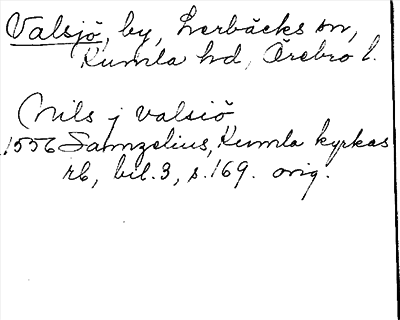 Valsjö, by, Lerbäcks sn,
Kumla hd, Örebro l.
Nils j valsiö
1556 Samzelius, Kumla kyrkas
rb, bil. 3, s. 169. orig.